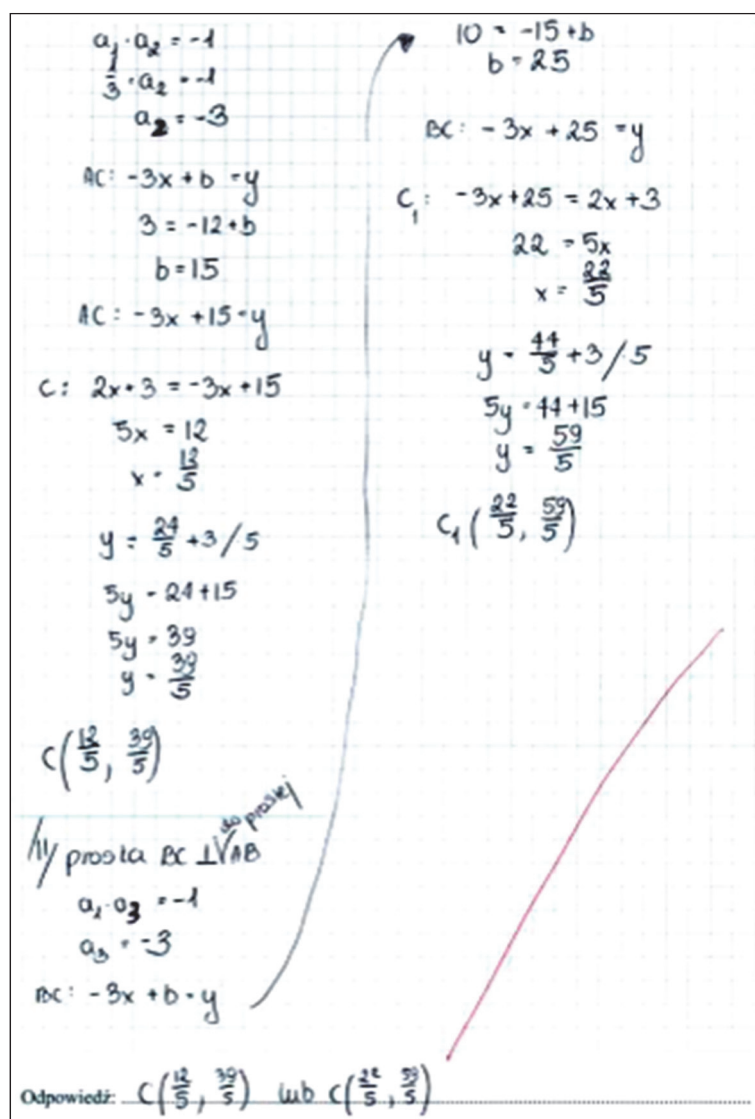 a₁ · a₂ = -1
1/3 · a₂ = -1
a₂ = -3
AC: -3x + b = y
3 = -12 + b
b = 15
AC: -3x + 15 = y
C: 2x + 3 = -3x + 15
5x = 12
x = 12/5
y = 24/5 + 3 / · 5
5y = 24 + 15
5y = 39
y = 39/5
C(12/5, 39/5)
/II/ prosta BC ⊥ do prostej AB
a₁ · a₃ = -1
a₃ = -3
BC: -3x + b = y
10 = -15 + b
b = 25
BC: -3x + 25 = y
C₁: -3x + 25 = 2x + 3
22 = 5x
x = 22/5
y = 44/5 + 3 / · 5
5y = 44 + 15
y = 59/5
C₁(22/5, 59/5)
Odpowiedź: C(12/5, 39/5) lub C(22/5, 59/5)